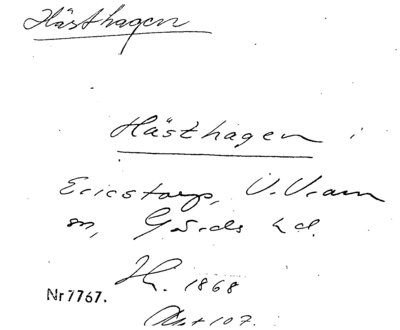 Hästhagen
Hästhagen i
Ericstorp, V. Vram
sn, Gärds hd.
1868
Nr 7767.
Akt 107.